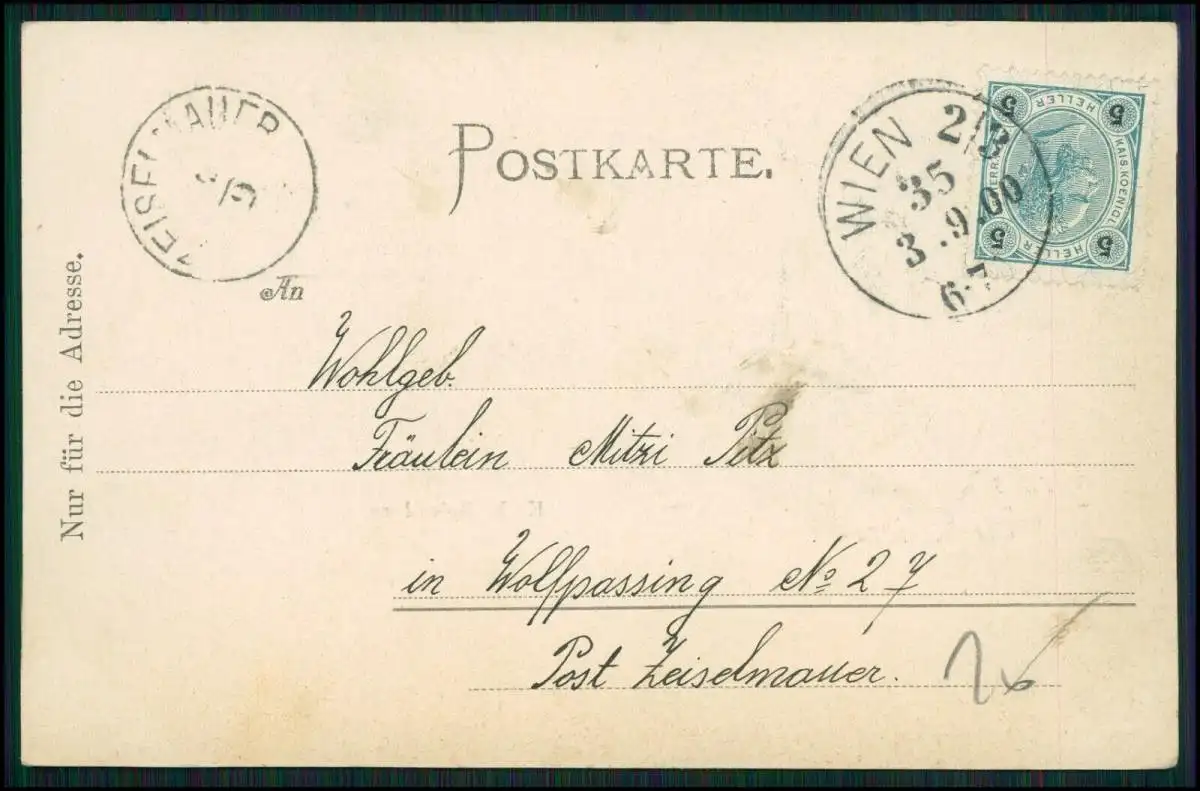 ZEISELMAUER
/9
POSTKARTE.
WIEN 2/3
35
3.9.00
6-7
5 HELLER 5
KAIS. KOENIGL.
5 HELLER 5
An
Nur für die Adresse.
Wohlgeb.
Fräulein Mitzi Pitz
in Wolfpassing No 27
Post Zeiselmauer.